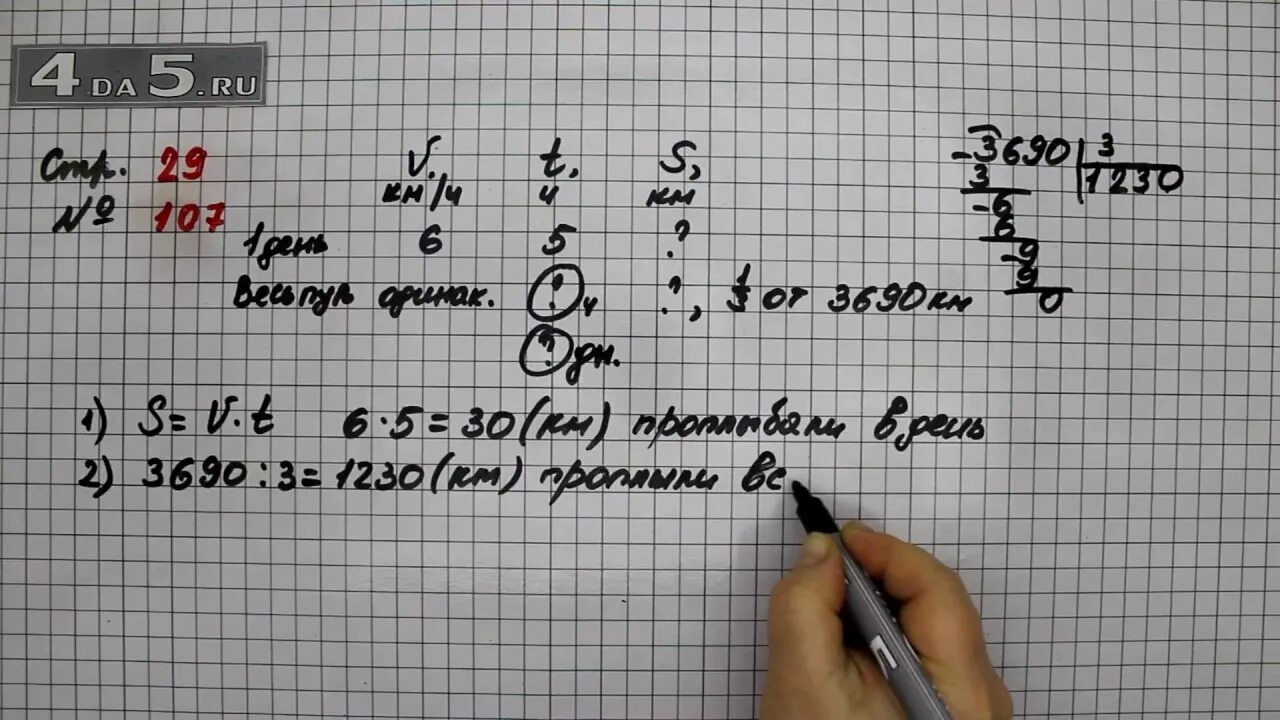 4 DA 5.RU
Стр. 29
№ 107
V, t, S,
км/ч ч км
1 день 6 5 ?
Весь путь одинак. ? ч ?, 1/3 от 3690 км
? дн.
1) S = V · t 6 · 5 = 30 (км) проплывали в день
2) 3690 : 3 = 1230 (км) проплыли вс
- 3690 | 3
3 1230
- 6
6
- 9
9
0